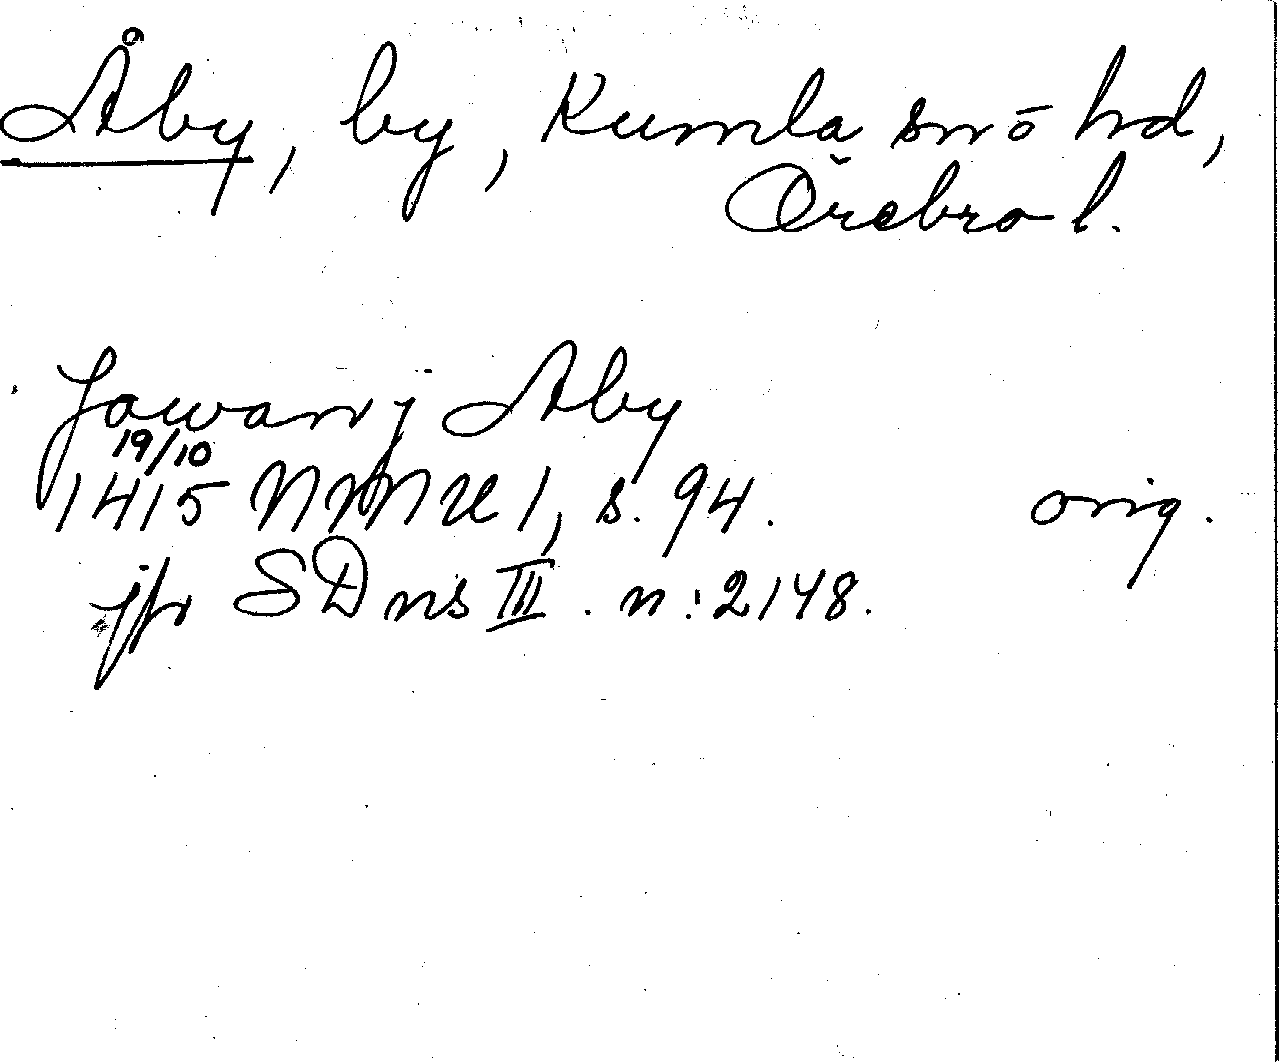 Åby, by, Kumla sn o hd,
Örebro l.
Jowan j Aby
19/10
1415 NMU 1, s. 94. orig.
jfr SD ns III. n:2148.